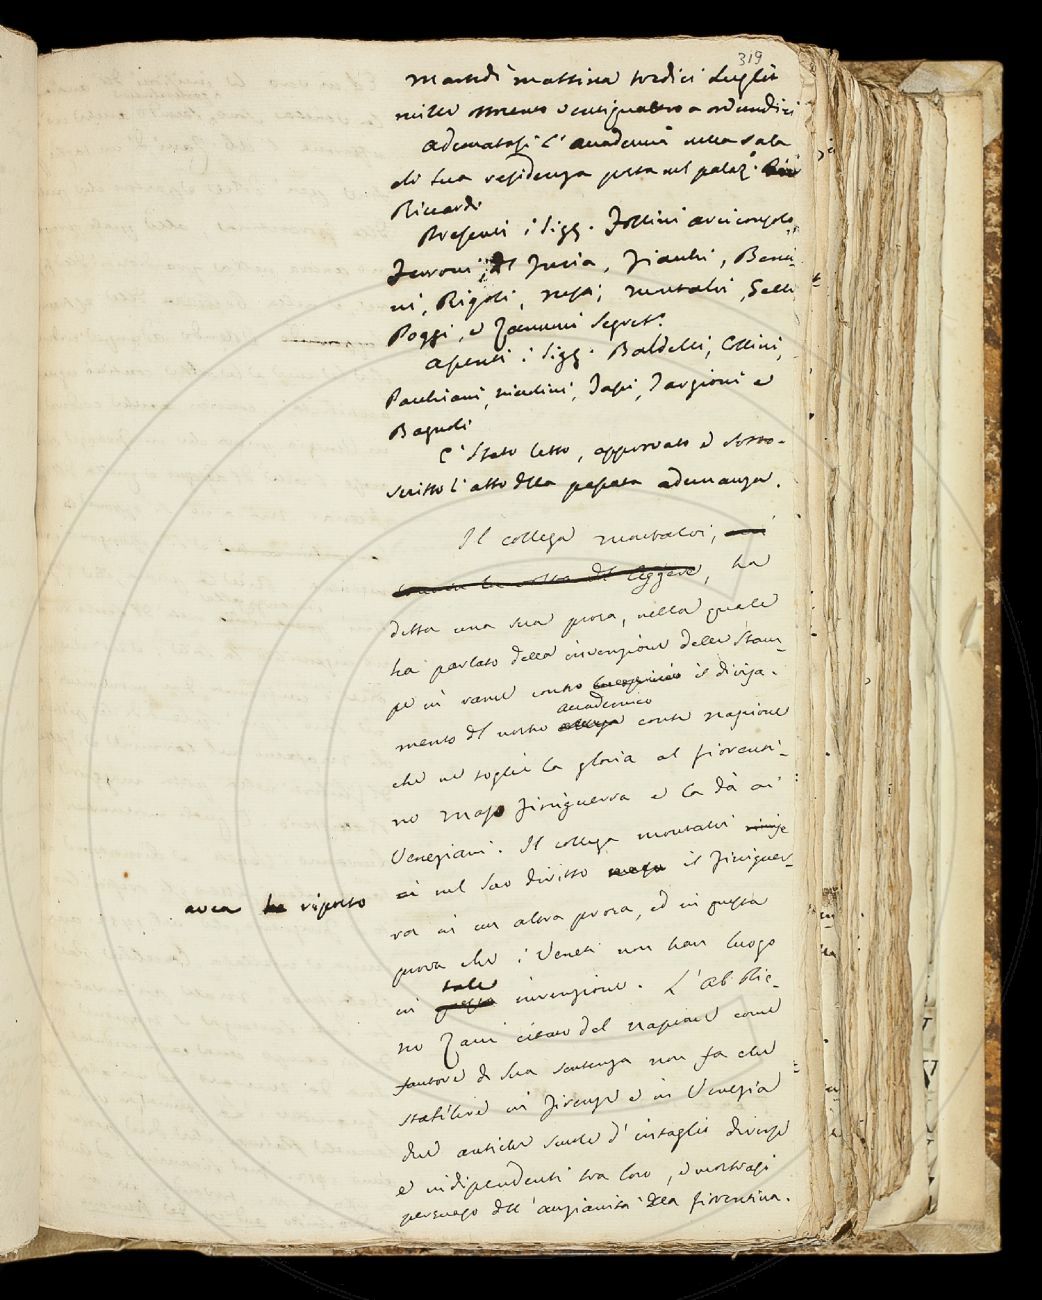 319
Martedì mattina tredici Luglio
mille ottocento ventiquattro a ore undici
adunatasi l'accademia nella sala
di sua residenza posta nel palaz.
Riccardi
Presenti i Sigg. Follini arciconsolo,
Ferroni, Del Furia, Fiacchi, Benci-
ni, Rigoli, Montalvi, Selli
Poggi, e Zannoni Segret.
Assenti i Sigg. Baldelli, Collini,
Pacchiani, Niccolini, Papi, Targioni e
Bagnoli
È stato letto, approvato e sotto-
scritto l'atto della passata adunanza.
Il collega Montalvi,
del leggere, ha
detta una sua prosa, nella quale
ha parlato della invenzione delle Stam-
pe in rame contro il divisa-
accademico
mento del nostro conte Napione
che ne toglie la gloria al fiorenti-
no Maso Finiguerra e la dà ai
Veneziani. Il collega Montalvi
avea ha riposto
nel suo diritto il Finiguer-
ra in un altra prosa, ed in questa
prova che i Veneti non han luogo
tale
in questa invenzione. L'Ab. Pie-
ro Zani citato dal Napione come
fautore di sua sentenza non fa che
stabilire in Firenze e in Venezia
due antiche scuole d'intaglio diverse
e indipendenti tra loro, e mostrasi
persuaso dell'anzianità della fiorentina.